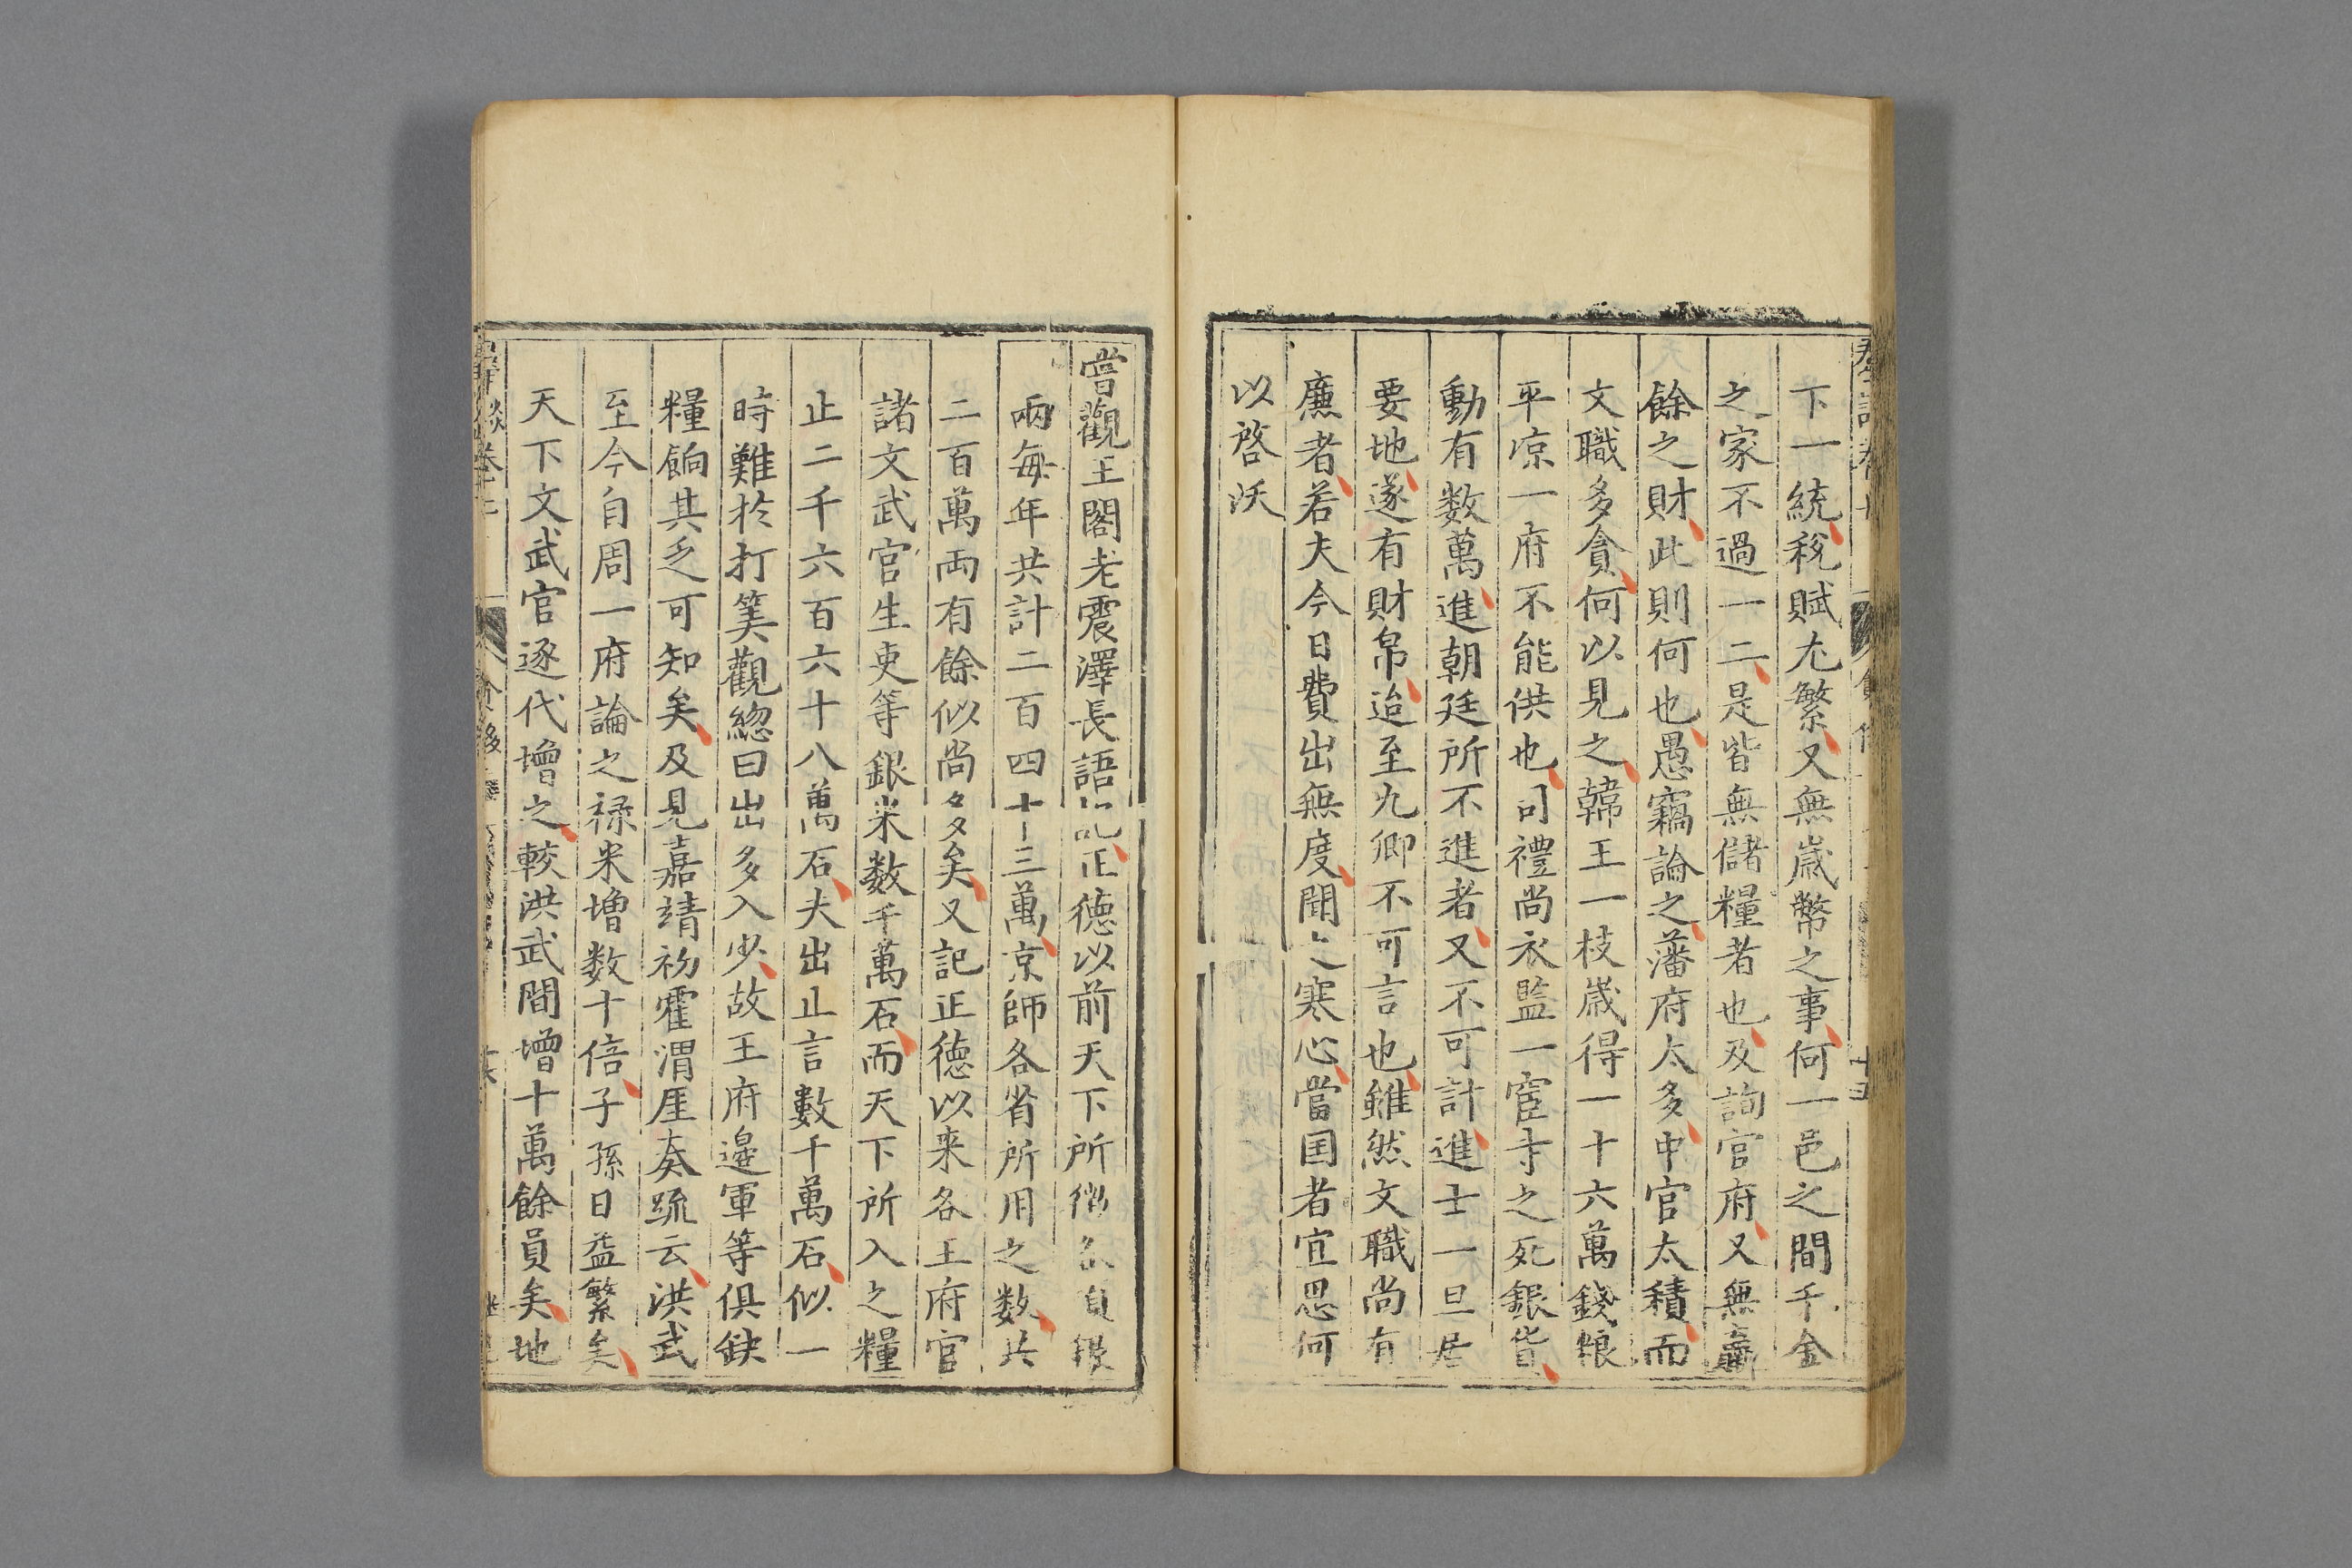 下一統稅賦尤繁又無歲幣之事何一邑之間千金
之家不過一二是皆無儲糧者也及詢官府又無羸
餘之財此則何也愚竊論之藩府太多中官太積而
文職多貪何以見之韓王一枝歲得一十六萬錢粮
平凉一府不能供也司禮尚衣監一宦寺之死銀貨
動有数萬進朝廷所不進者又不可計進士一旦居
要地遂有財帛迨至九卿不可言也雖然文職尚有
廉者若夫今日費出無度聞之寒心當国者宜思何
以啓沃
嘗觀王閣老震澤長語記正德以前天下所徵
兩每年共計二百四十三萬京師各省所用之数共
二百萬両有餘似尚多矣又記正德以来各王府官
諸文武官生吏等銀米数千萬石而天下所入之糧
止二千六百六十八萬石夫出止言數千萬石似一
時難於打筭觀總曰出多入少故王府邉軍等俱缺
糧餉其乏可知矣及見嘉靖初霍渭厓奏疏云洪武
至今自周一府論之禄米增数十倍子孫日益繁矣
天下文武官逐代增之較洪武間增十萬餘員矣地